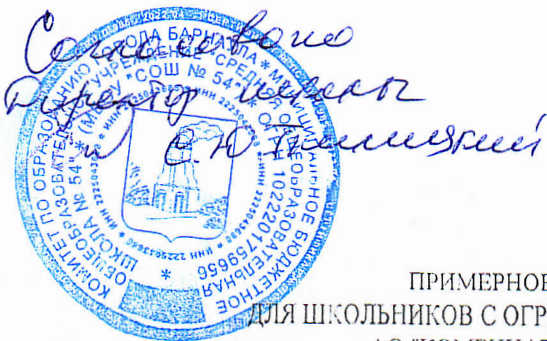 Согласовано
Директор школы
С.Ю.
КОМИТЕТ ПО ОБРАЗОВАНИЮ ГОРОДА БАРНАУЛА * МУНИЦИПАЛЬНОЕ БЮДЖЕТНОЕ
ОБЩЕОБРАЗОВАТЕЛЬНОЕ УЧРЕЖДЕНИЕ "СРЕДНЯЯ ОБЩЕОБРАЗОВАТЕЛЬНАЯ
ШКОЛА № 54" * (МБОУ "СОШ № 54") * ОГРН 1022201759656
*
ПРИМЕРНОЕ
ДЛЯ ШКОЛЬНИКОВ С ОГР